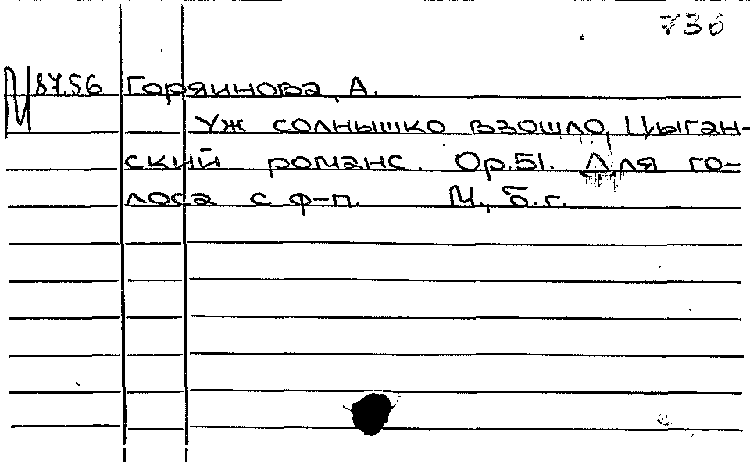 736
М 87.56 Горяинова, А.
Уж солнышко взошло. Цыган-
ский романс. Op.51. Для го-
лоса с ф-п. М., б.г.